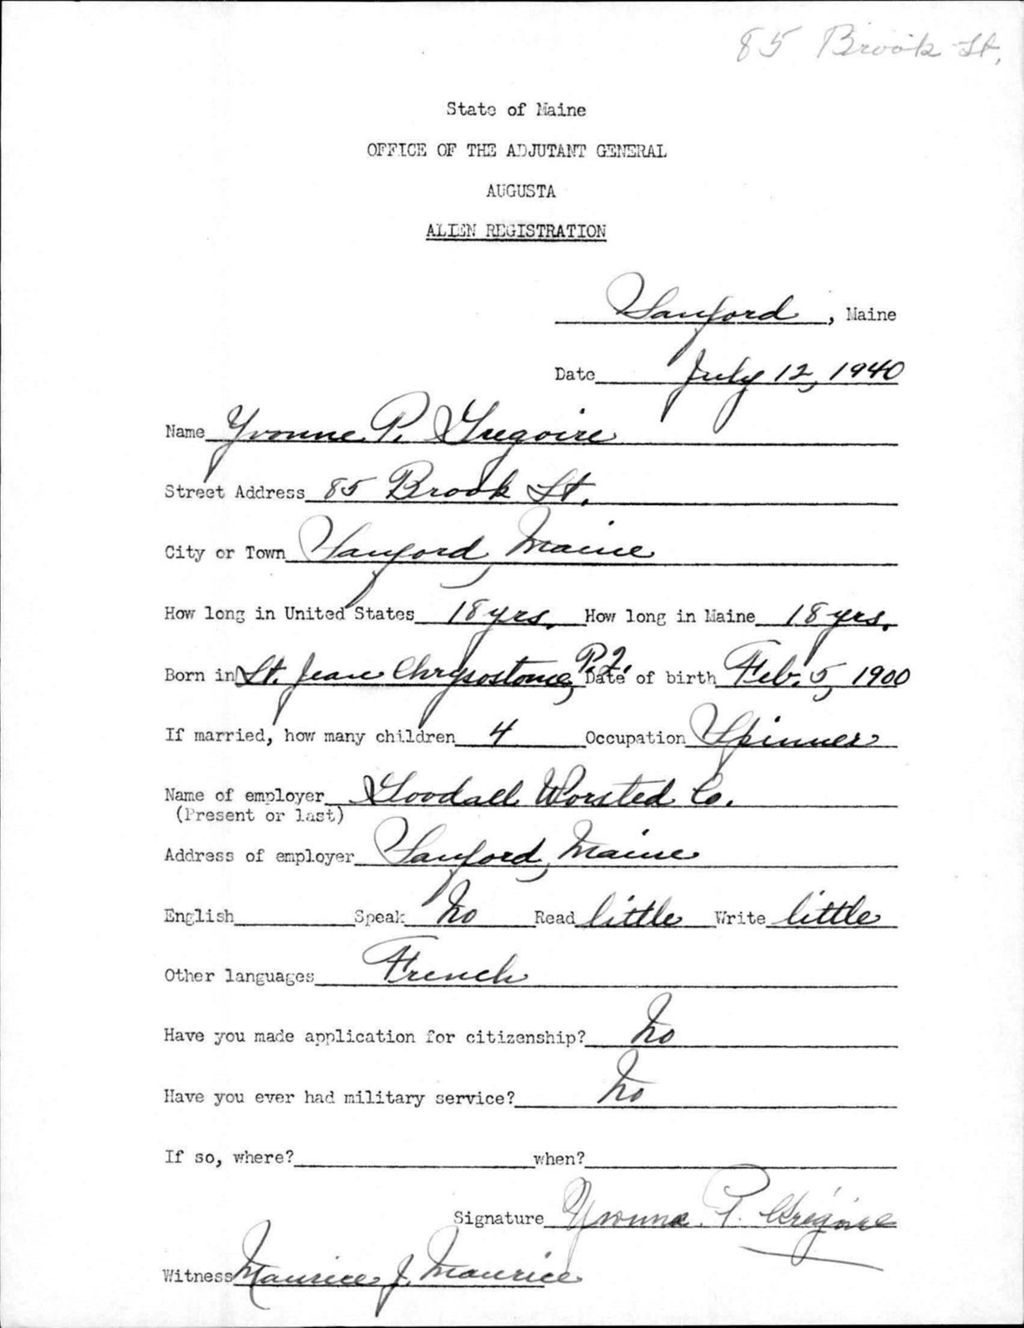 85 Brook St.
State of Maine
OFFICE OF THE ADJUTANT GENERAL
AUGUSTA
ALIEN REGISTRATION
Sanford, Maine
Date July 12, 1940
Name Yvonne P. Gregoire
Street Address 85 Brook St.
City or Town Sanford, Maine
How long in United States 18 yrs. How long in Maine 18 yrs.
Born in St. Jean Chrysostome, P.Q. Date of birth Feb. 5, 1900
If married, how many children 4 Occupation Spinner
Name of employer Goodall Worsted Co.
(Present or last)
Address of employer Sanford, Maine
English Speak No Read little Write little
Other languages French
Have you made application for citizenship? No
Have you ever had military service? No
If so, where? when?
Signature Yvonne P. Grégoire
Witness Maurice J. Maurice